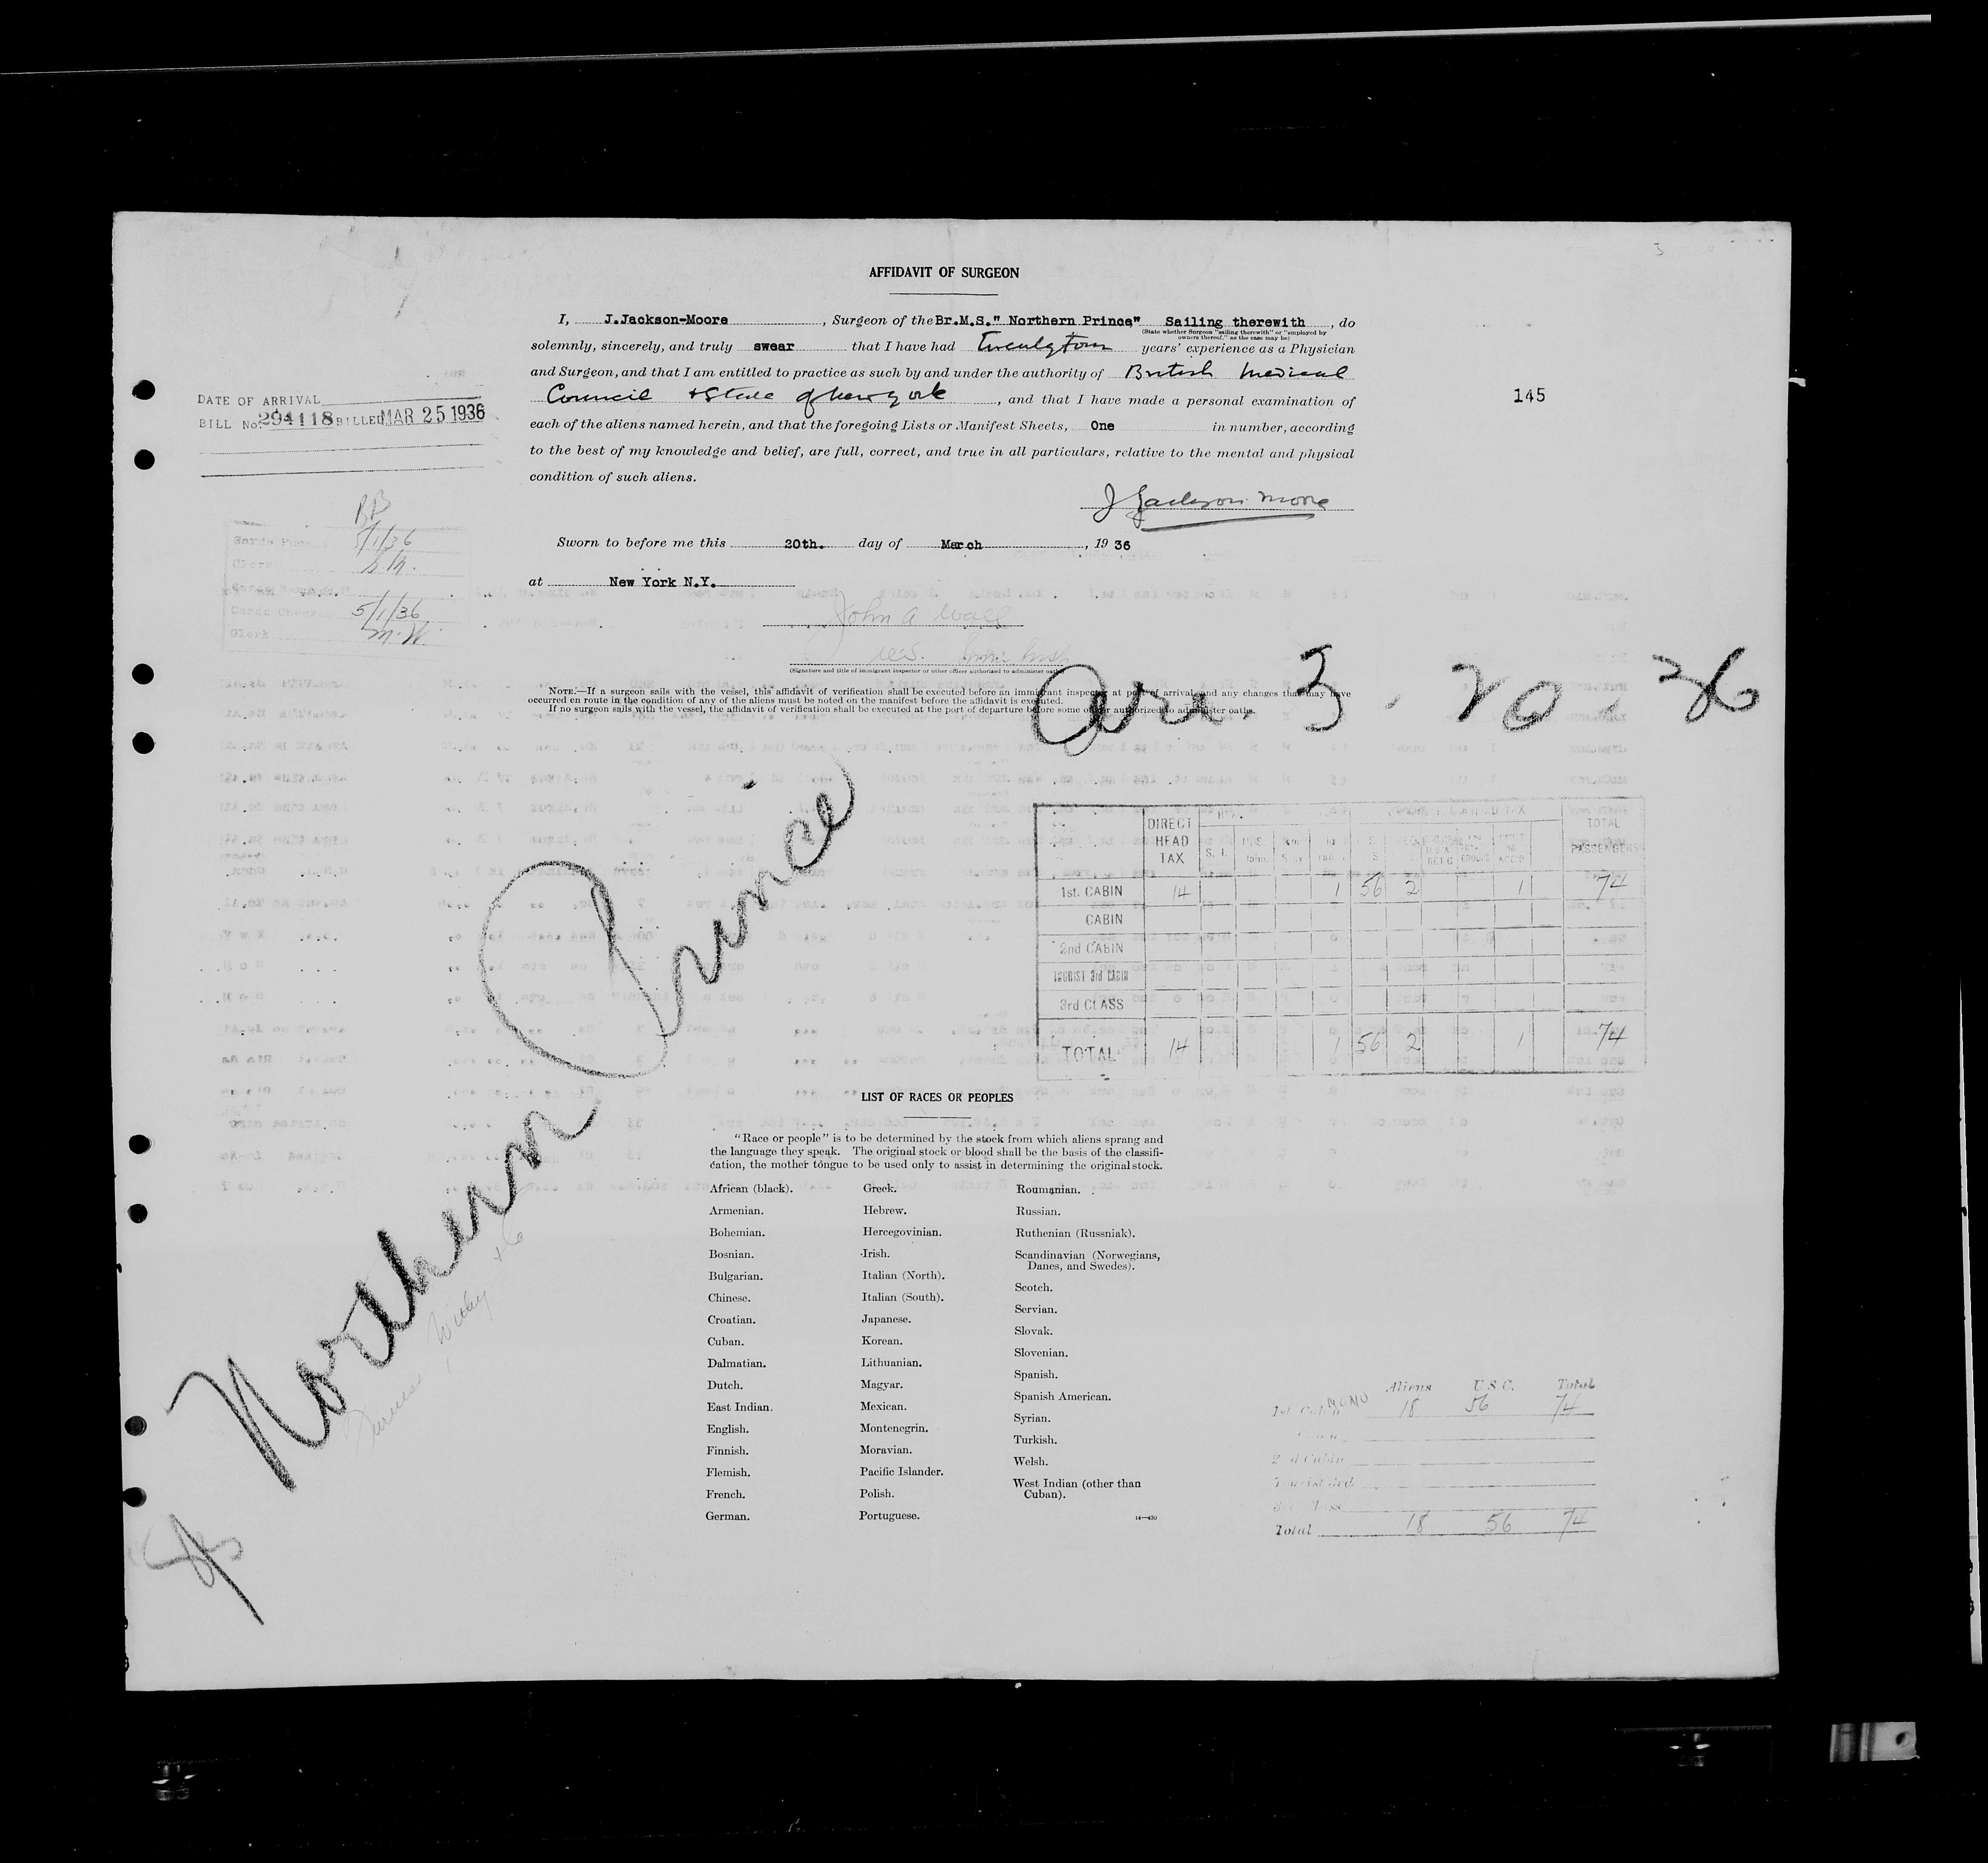 AFFIDAVIT OF SURGEON
I, J.Jackson-Moore, Surgeon of the Br.M.S." Northern Prince" Sailing therewith, do
(State whether Surgeon "sailing therewith" or "employed by
owners thereof," as the case may be)
solemnly, sincerely, and truly swear that I have had twenty four years' experience as a Physician
and Surgeon, and that I am entitled to practice as such by and under the authority of British Medical
Council + State of New York, and that I have made a personal examination of
each of the aliens named herein, and that the foregoing Lists or Manifest Sheets, One in number, according
to the best of my knowledge and belief, are full, correct, and true in all particulars, relative to the mental and physical
condition of such aliens.
J Jackson Moore
Sworn to before me this 20th. day of March, 19 36
at New York N.Y.
John A Wall
U.S.
(Signature and title of immigrant inspector or other officer authorized to administer
NOTE.—If a surgeon sails with the vessel, this affidavit of verification shall be executed before an immigrant inspector at port of arrival, and any changes that may have
occurred en route in the condition of any of the aliens must be noted on the manifest before the affidavit is executed.
If no surgeon sails with the vessel, the affidavit of verification shall be executed at the port of departure before some officer authorized to administer oaths.
DATE OF ARRIVAL
BILL No. 294118 BILLED MAR 25 1936
145
3
5/1/36
Clerk
5/1/36
Clerk M.W.
Arr. 3 . 20 . 36
Northern Prince
Furness, Withy + Co
DIRECT HEAD TAX TOTAL PASSENGERS
1st. CABIN 14 1 56 2 1 74
CABIN
2nd CABIN
TOURIST 3rd CABIN
3rd CLASS
TOTAL 14 1 56 2 1 74
LIST OF RACES OR PEOPLES
"Race or people" is to be determined by the stock from which aliens sprang and
the language they speak. The original stock or blood shall be the basis of the classifi-
cation, the mother tongue to be used only to assist in determining the original stock.
African (black).
Armenian.
Bohemian.
Bosnian.
Bulgarian.
Chinese.
Croatian.
Cuban.
Dalmatian.
Dutch.
East Indian.
English.
Finnish.
Flemish.
French.
German.
Greek.
Hebrew.
Hercegovinian.
Irish.
Italian (North).
Italian (South).
Japanese.
Korean.
Lithuanian.
Magyar.
Mexican.
Montenegrin.
Moravian.
Pacific Islander.
Polish.
Portuguese.
Roumanian.
Russian.
Ruthenian (Russniak).
Scandinavian (Norwegians,
Danes, and Swedes).
Scotch.
Servian.
Slovak.
Slovenian.
Spanish.
Spanish American.
Syrian.
Turkish.
Welsh.
West Indian (other than
Cuban).
14—430
Aliens U.S.C. Total
1st Cabin 18 56 74
2nd Cabin
Tourist 3rd
Total 18 56 74